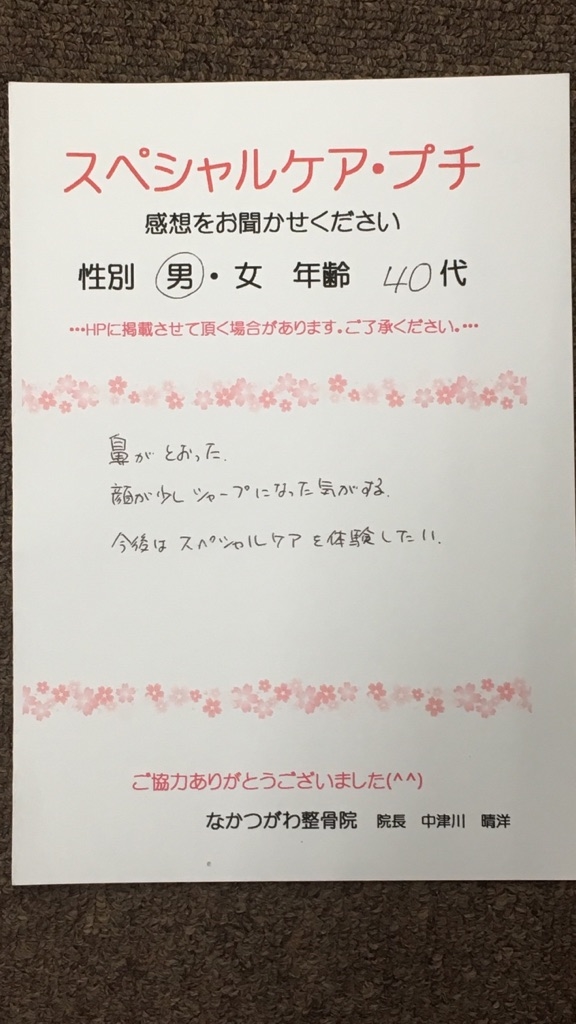 スペシャルケア・プチ
感想をお聞かせください
性別 男・女 年齢 40代
…HPに掲載させて頂く場合があります。ご了承ください。…
鼻がとおった.
顔が少しシャープになった気がする.
今後はスペシャルケアを体験したい.
ご協力ありがとうございました(^^)
なかつがわ整骨院 院長 中津川 晴洋